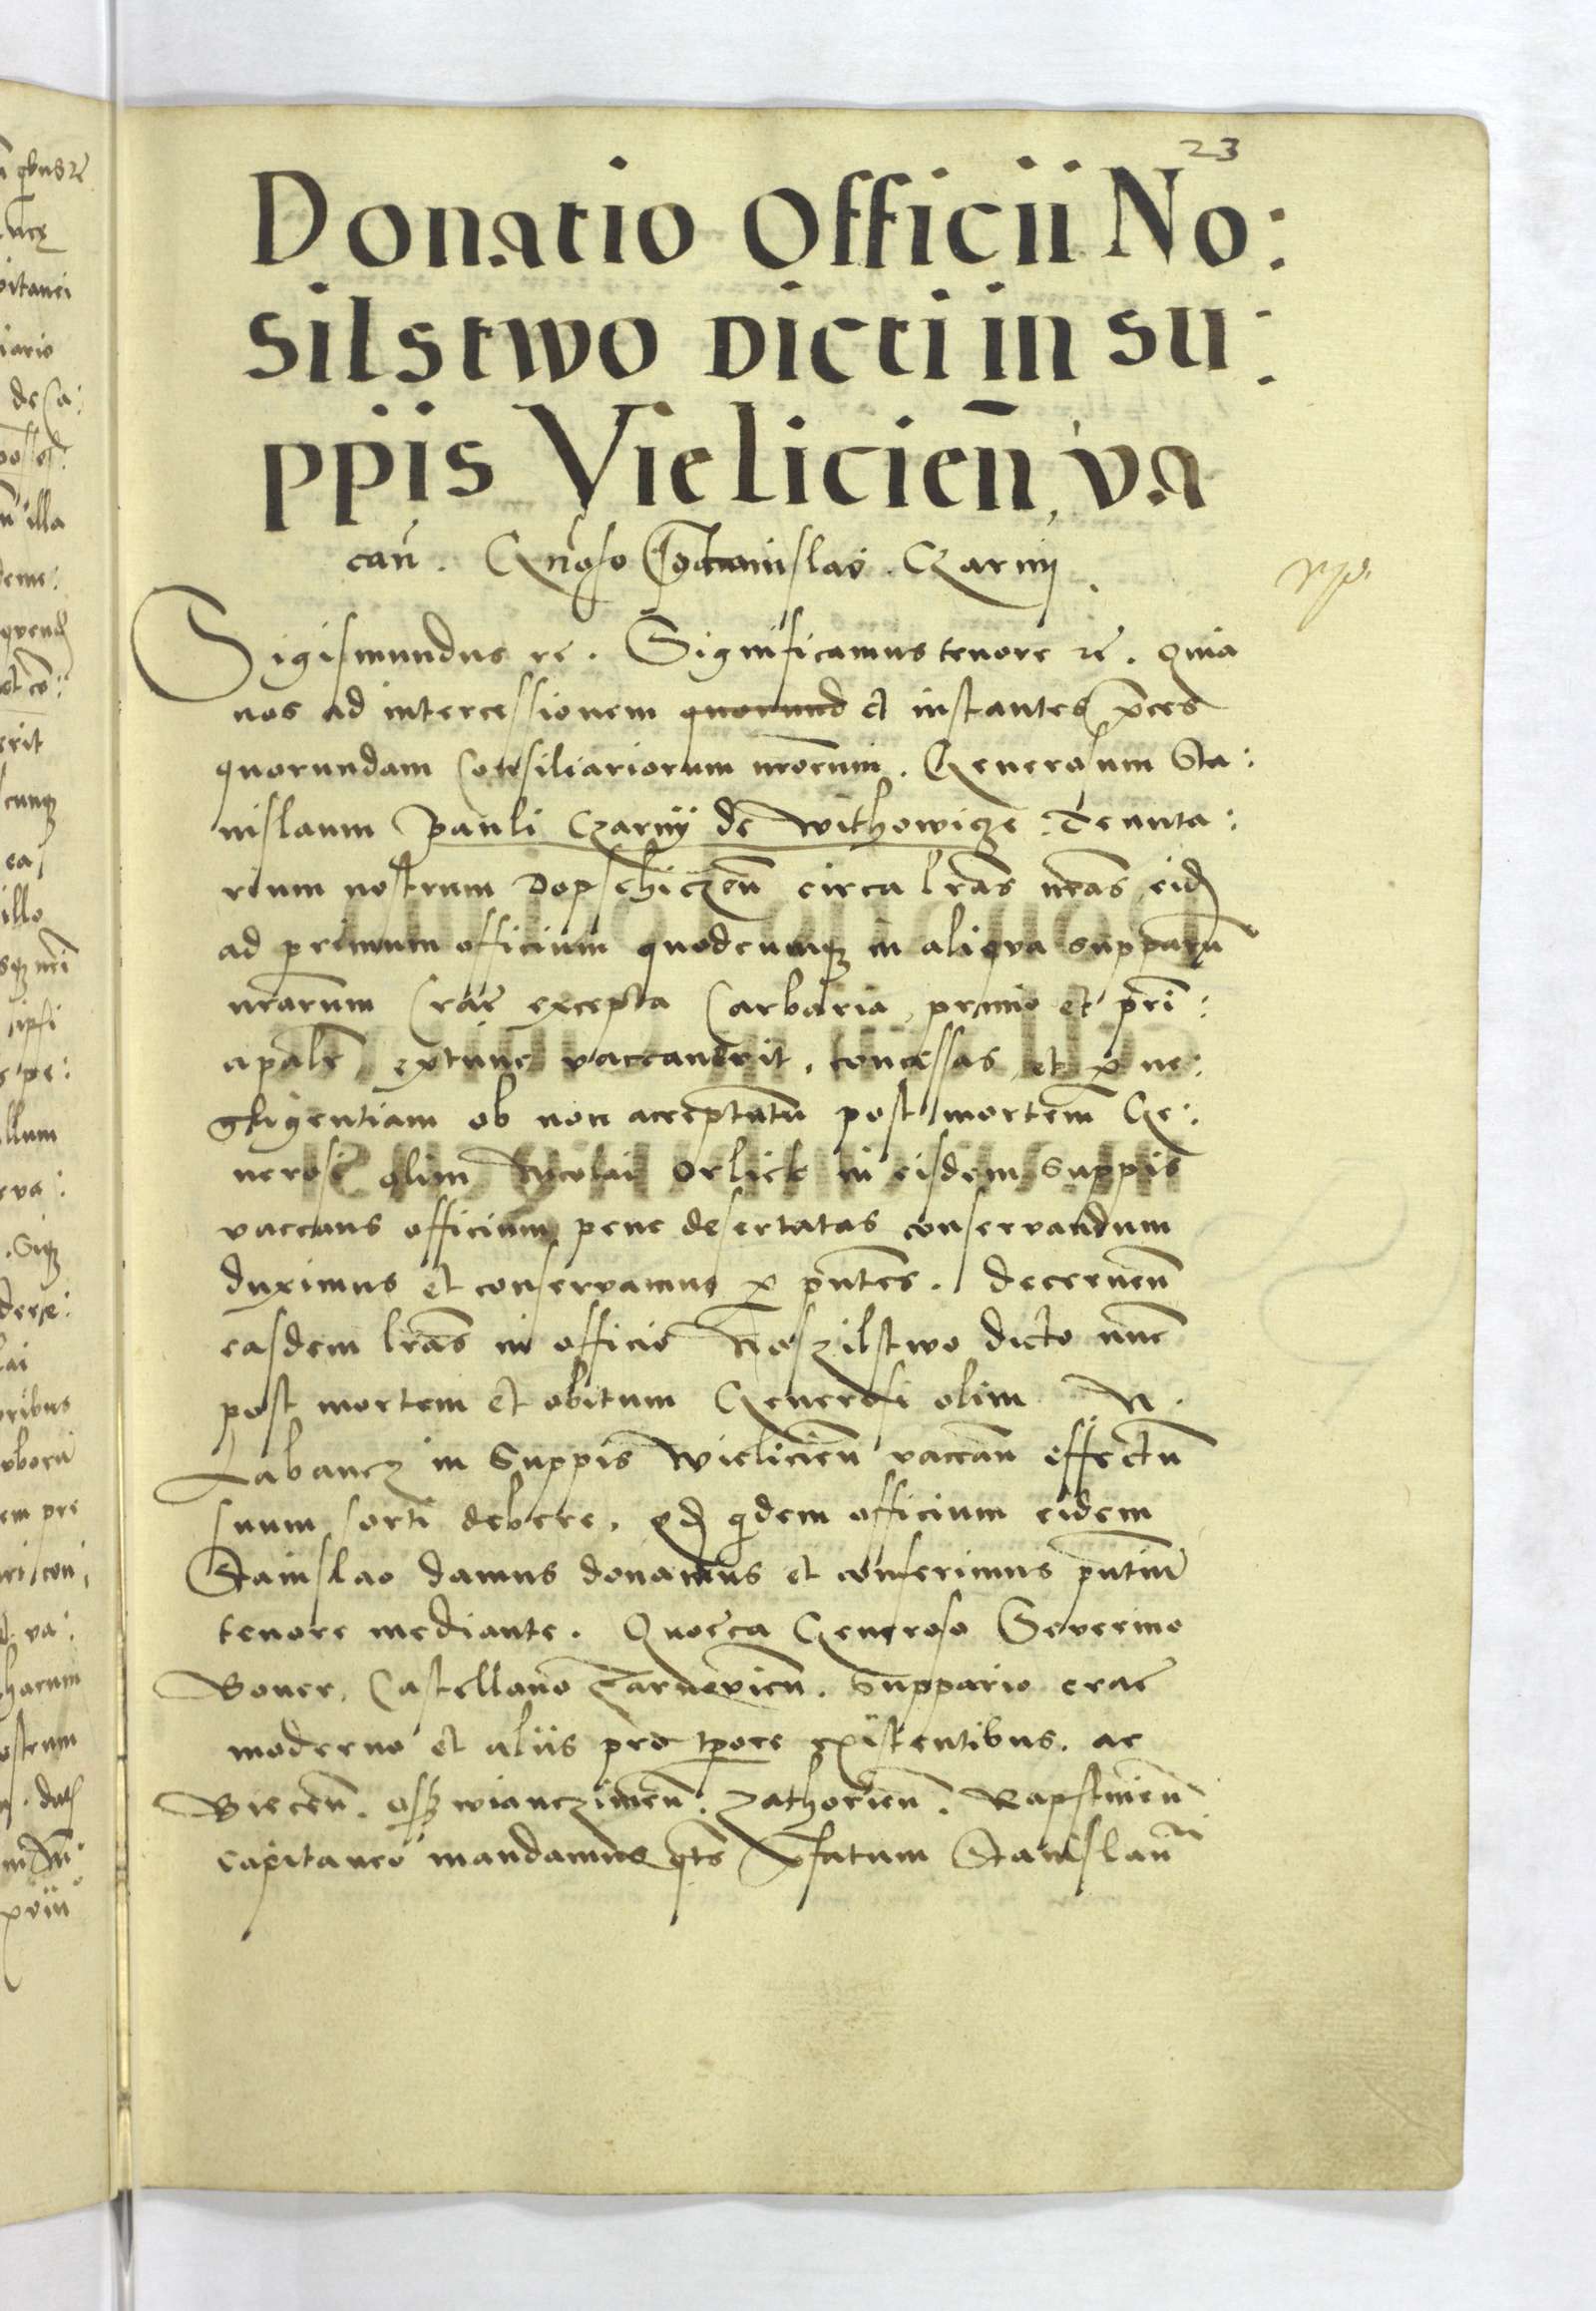 23
Donatio Officii No:
silstwo dicti in su:
ppis Vieliciēn, va
cań. Gn̄oso Stanislao. Czarnÿ.
Sigismundus re. Significamus tenore re. quia
nos ad intercessionem quorumd et instantes p̄ces
quorundam Consiliariorum nr̄orum. Generosum Sta:
nislaum Pauli Czarnÿ de Withowicze Tenuta:
rium nostrum Dopschiczeñ circa lr̄as nr̄as eid
ad primum officium quodcunq in aliqua supparū
nr̄arum Crac̄ excepta Carbaria, primo et prī:
cipalr̄ extunc vaccauerit, concessas et p ne:
gligentiam ob non acceptatū post mortem Ge:
nerosi olim Nicolai Orlick in eisdem Suppis
vaccans officium pene desertatas conservandum
duximus et conservamus p pn̄tes. Decerneñ
easdem lr̄as in officio Noszilstwo dicto nunc
post mortem et obitum Generosi olim N.
Labancz in Suppis Wielicieñ vaccañ effectū
suum sorti debere. qd qdem officium eidem
Stanislao damus donamus et conferimus pn̄tium
tenore mediante. Quocca Generoso Severino
Boner, Castellano Tarnovieñ. Suppario crac̄
moderno et aliis pro tpore existentibus. ac
Bieceñ. Osswiancziмеñ. Zathorieñ. Rapstineñ
capitaneo mandamus qts p̄fatum Stanislaū